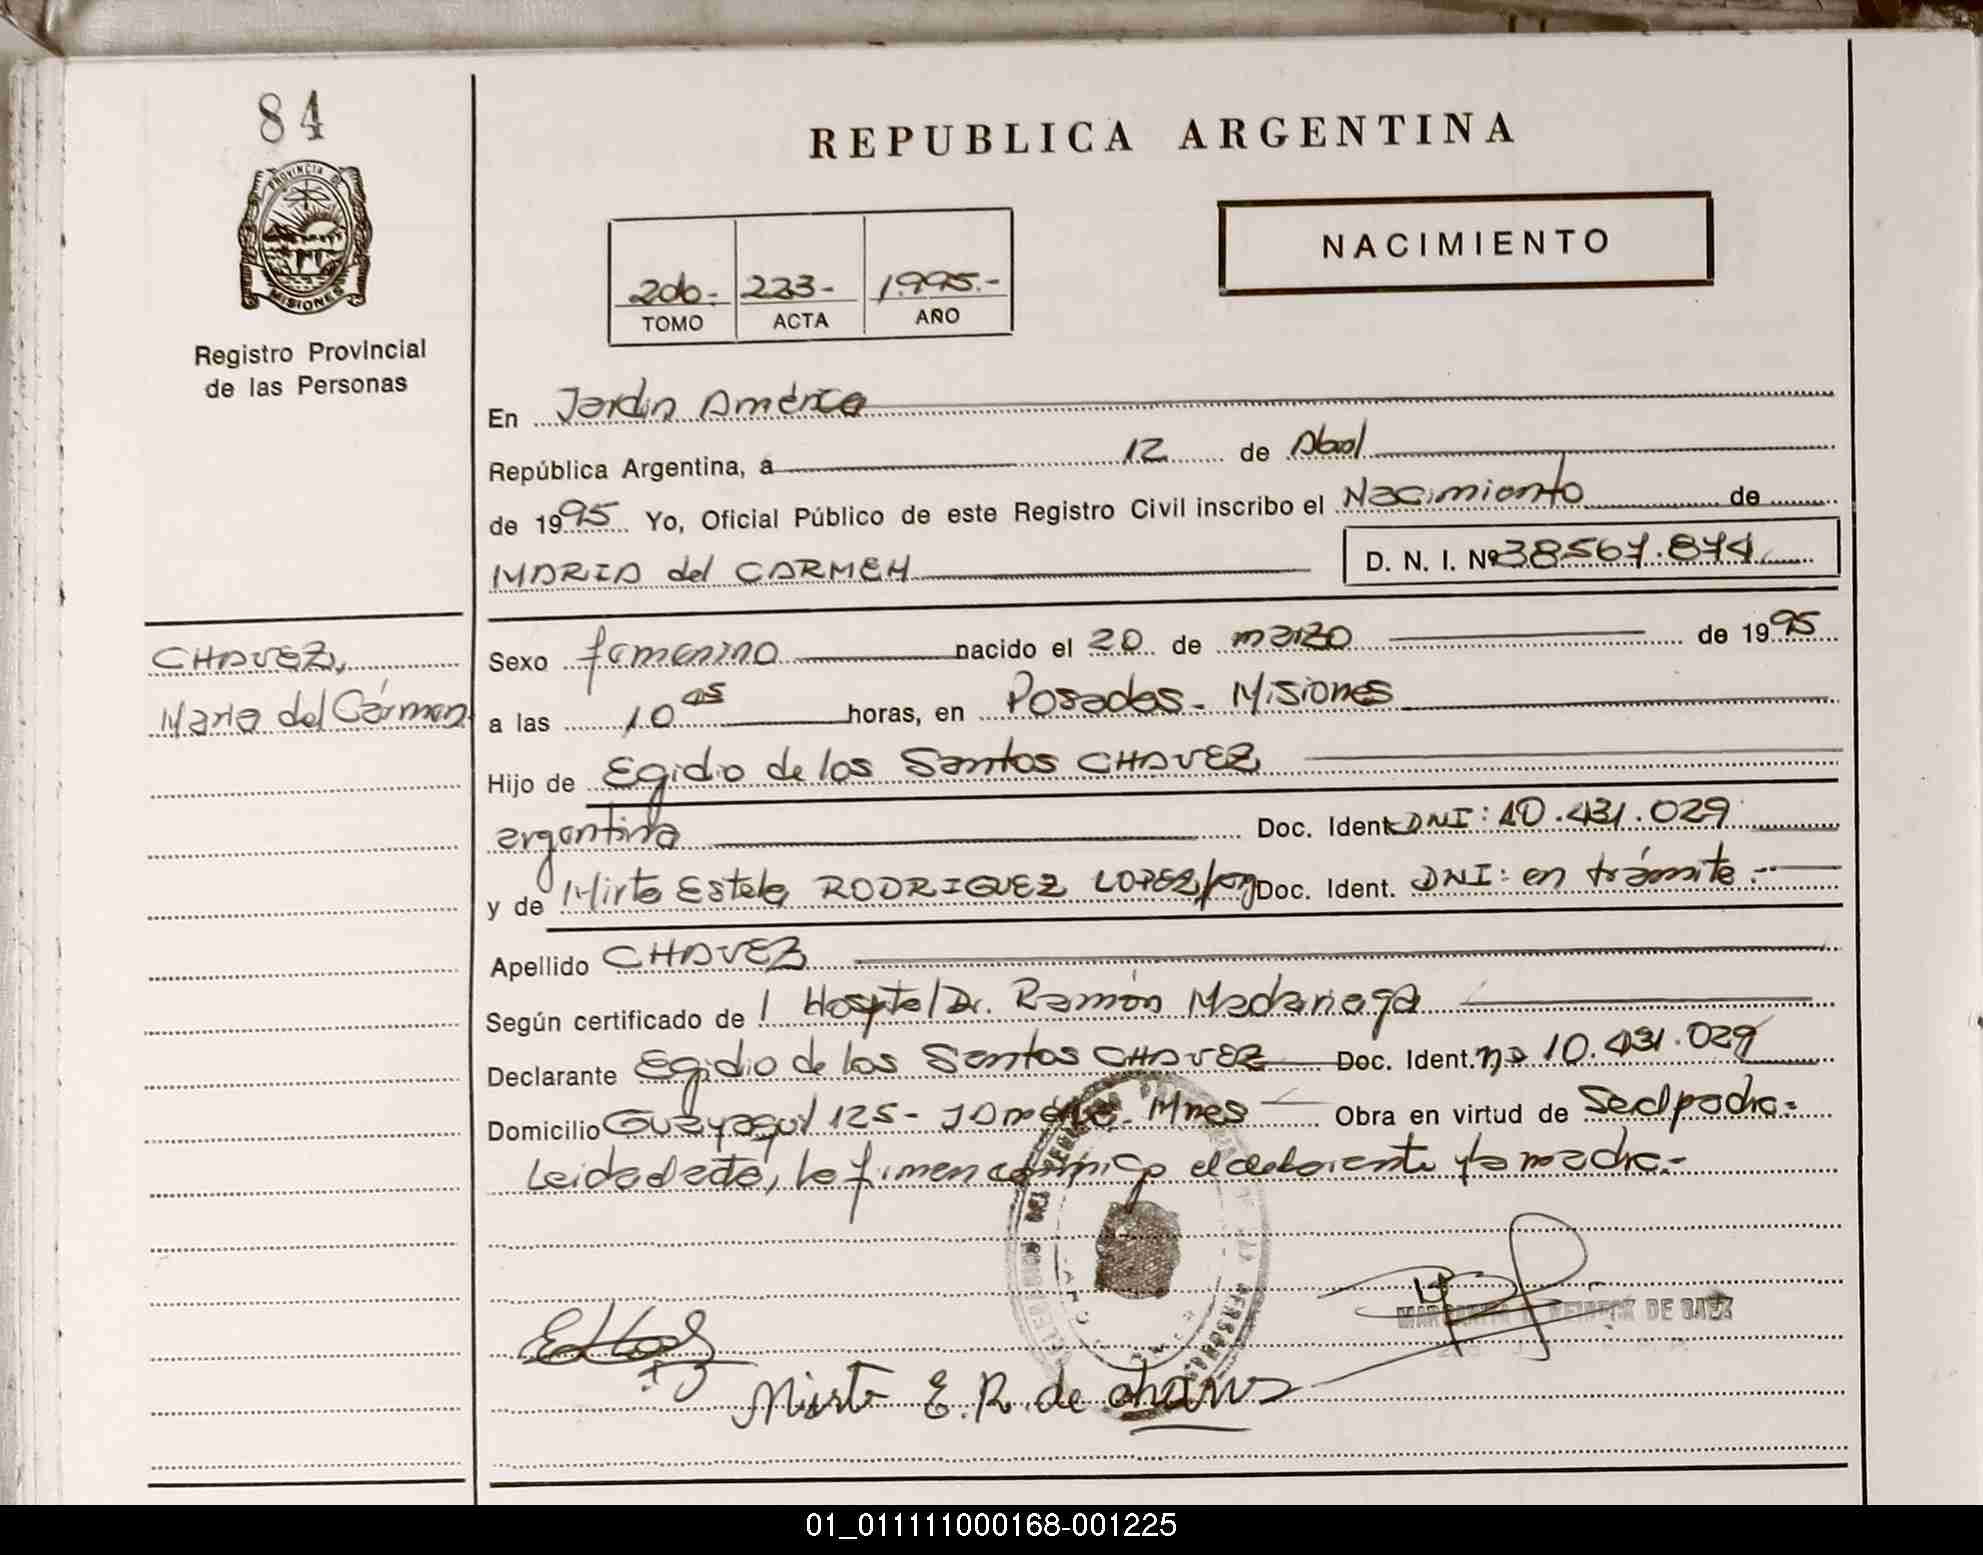 84
PROVINCIA DE
MISIONES
Registro Provincial
de las Personas
REPUBLICA ARGENTINA
NACIMIENTO
2do.- 223- 1.995.-
TOMO ACTA AÑO
En Jardín América
República Argentina, a 12 de Abril
de 1995 Yo, Oficial Público de este Registro Civil inscribo el Nacimiento de
MARIA del CARMEN D. N. I. Nº 38567.874
CHAVEZ,
Maria del Cármen
Sexo femenino nacido el 20 de marzo de 1995
a las 10 45 horas, en Posadas - Misiones
Hijo de Egidio de los Santos CHAVEZ
argentina Doc. Ident. DNI: 10.431.029
y de Mirta Estela RODRIGUEZ LOPEZ/arg Doc. Ident. DNI: en trámite.-
Apellido CHAVEZ
Según certificado de l Hospital Dr. Ramón Madariaga
Declarante Egidio de los Santos CHAVEZ Doc. Ident. nº 10.431.029
Domicilio Guayaquil 125 - J América. Mnes Obra en virtud de Ser el padre.-
Leida el acta, la firman conmigo el declarante y la madre.-
DE BAEZ
Mirta E. R. de
01_011111000168-001225